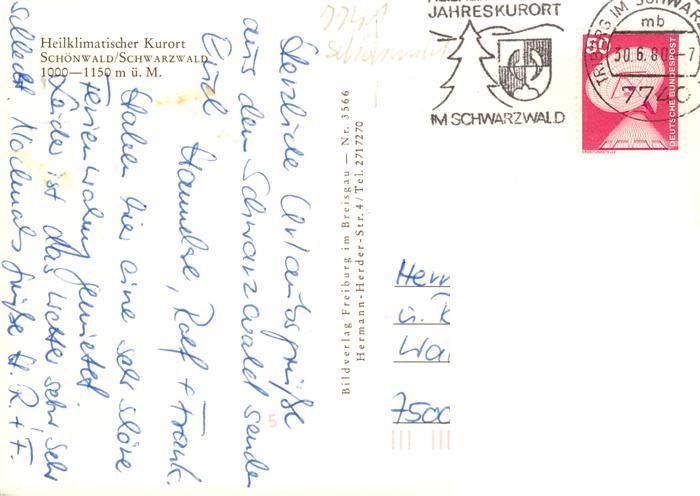 Heilklimatischer Kurort
SCHÖNWALD/SCHWARZWALD
1000—1150 m ü. M.
Herzliche Urlaubsgrüße
aus dem Schwarzwald senden
Euch Hannelore, Rolf + Frank.
Haben hier eine sehr schöne
Ferienwohnung gemietet.
Leider ist das Wetter sehr, sehr
schlecht. Nochmals Grüße H. R. + F.
Bildverlag Freiburg im Breisgau — Nr. 3566
Hermann-Herder-Str. 4/Tel. 2717270
JAHRESKURORT
IM SCHWARZWALD
TRIBERG IM SCHWARZ
mb
30.6.80-7
774
50
DEUTSCHE BUNDESPOST
Herr
u.
Wa
7500
5